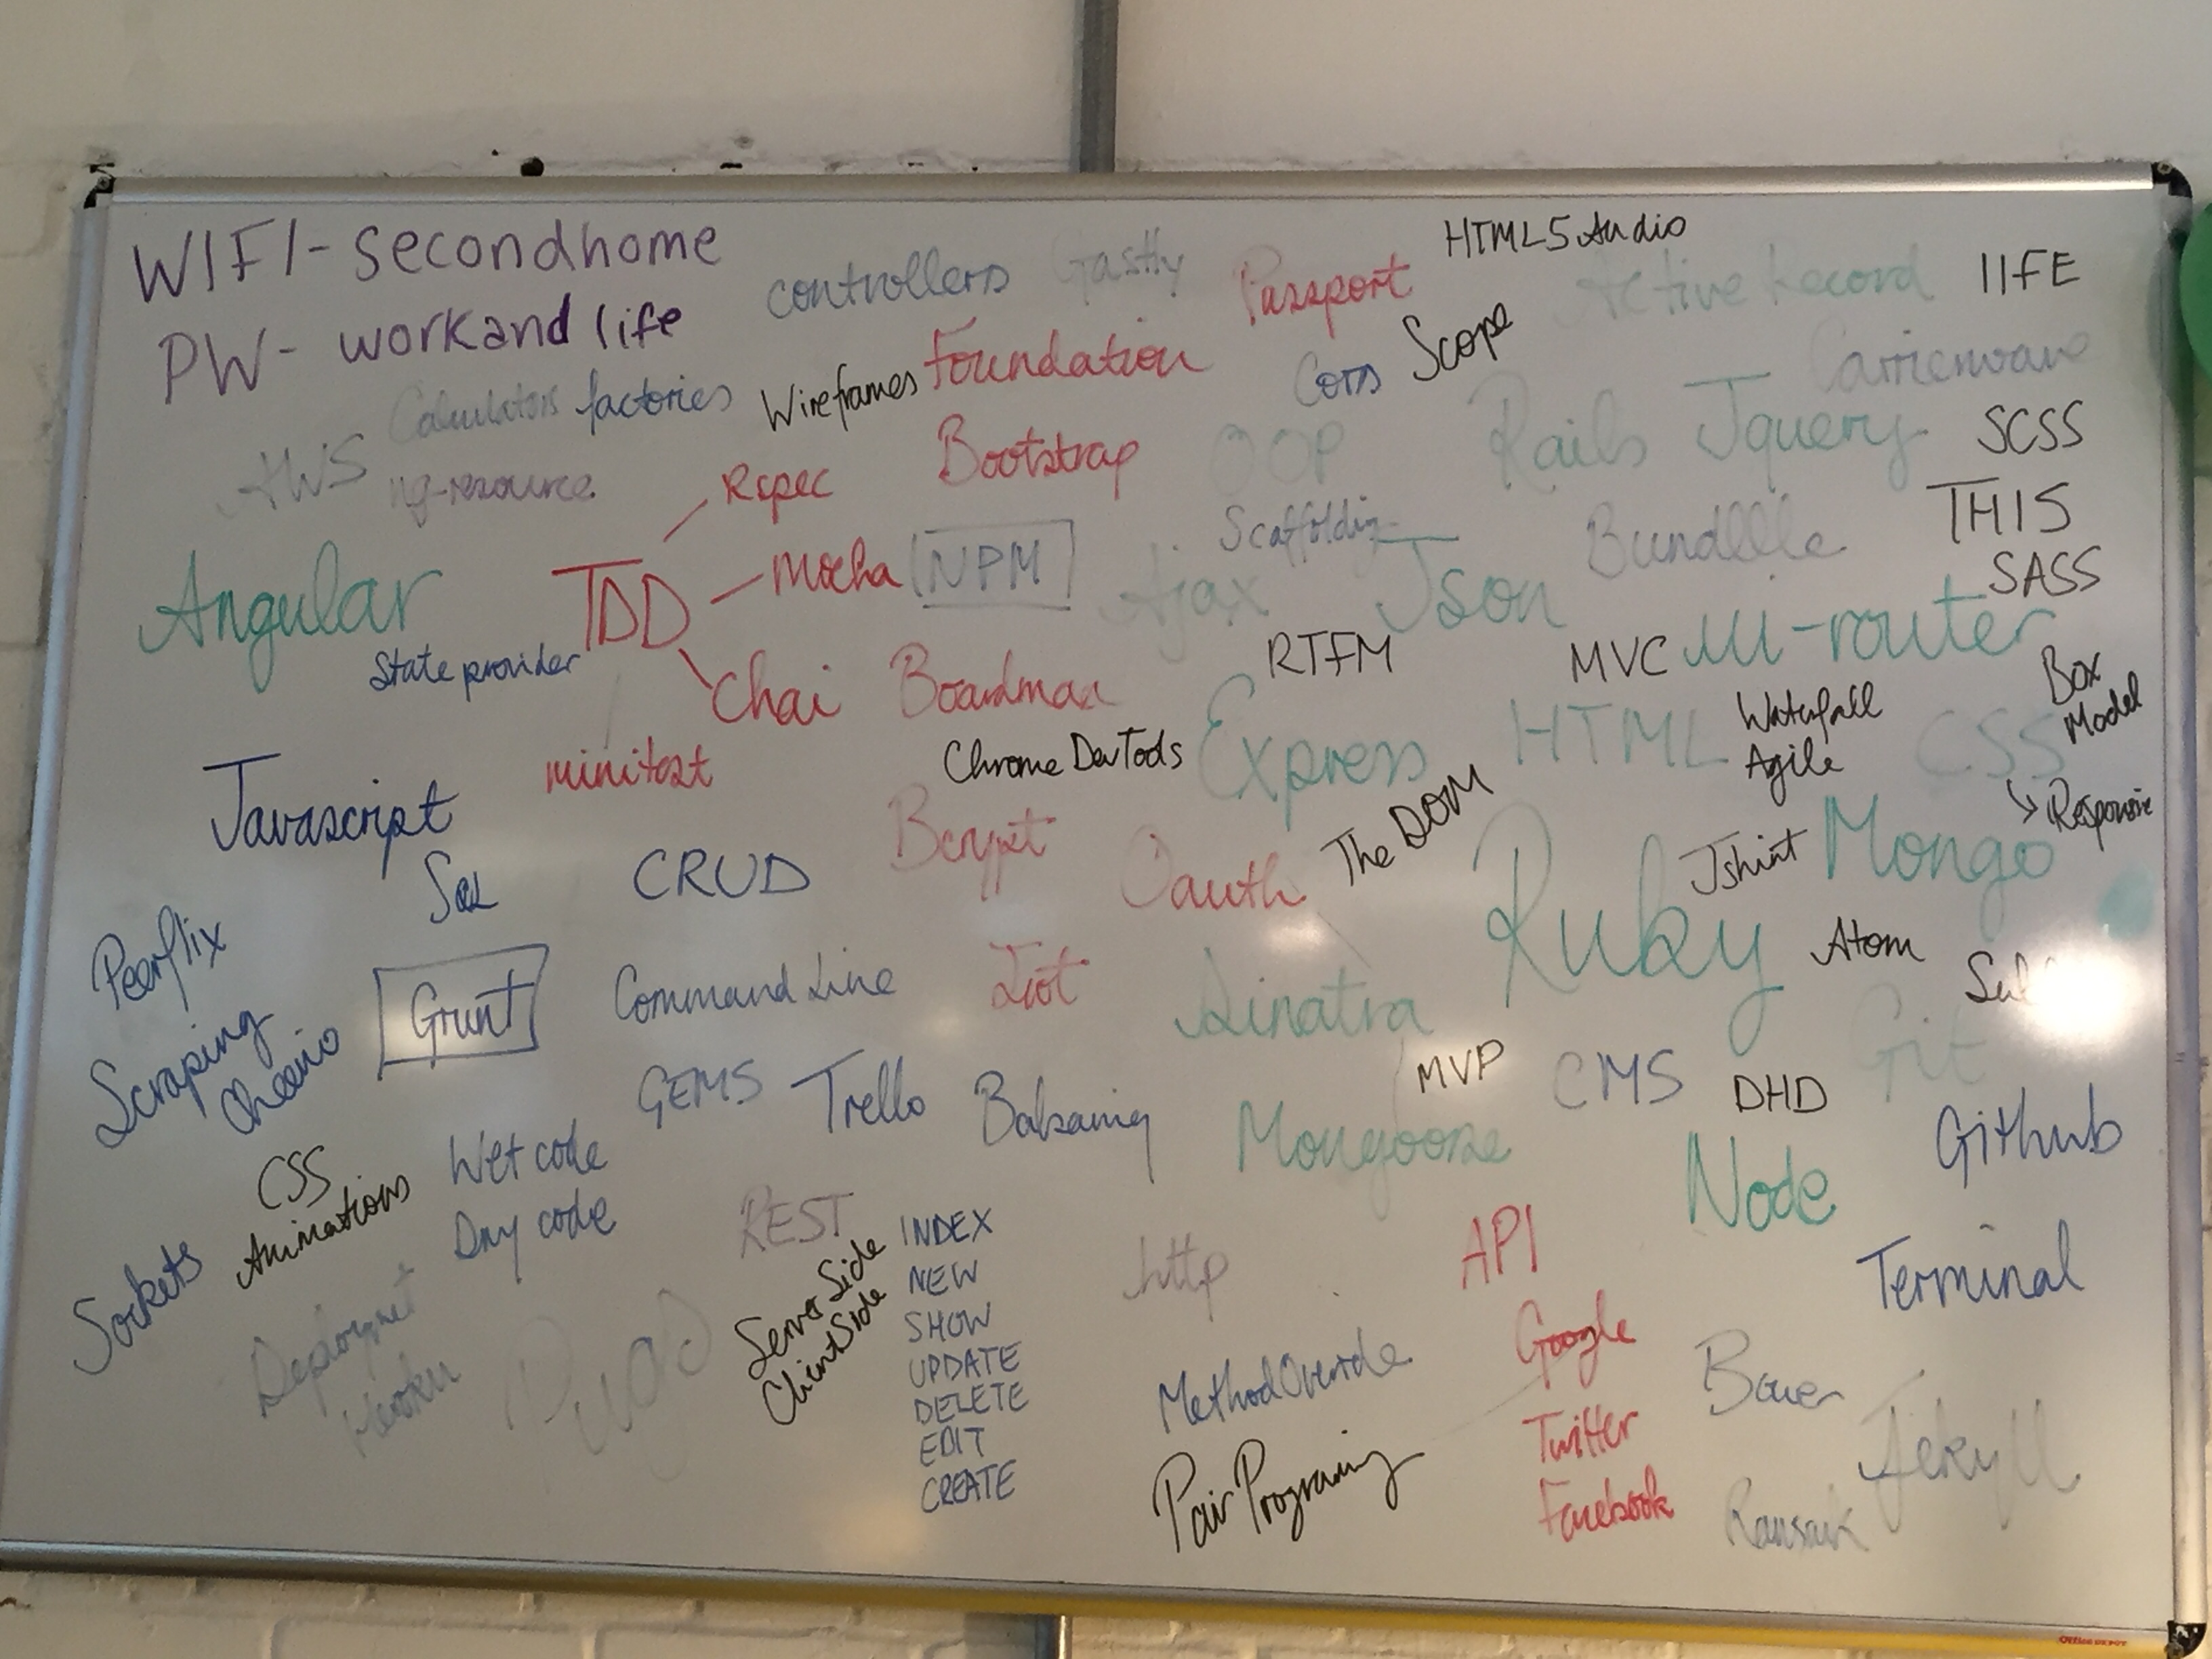 WIFI - secondhome
PW - workand life
controllers
Gastly
Passport
HTML5 Audio
Active Record
IIFE
Calculators
factories
Wireframes
Foundation
Cors
Scope
Carrierwave
AWS
ng-resource
Rspec
Bootstrap
OOP
Rails
Jquery
SCSS
Angular
TDD
Mocha
NPM
Scaffolding
Ajax
Json
Bundle
THIS
SASS
State provider
Chai
Boardman
RTFM
MVC
ui-router
Box
Model
minitest
Chrome DevTools
Express
HTML
Waterfall
Agile
CSS
Responsive
Javascript
Bcrypt
Oauth
The DOM
Jshint
Mongo
CRUD
Ruby
Atom
Peerflix
Grunt
Command Line
Sinatra
Git
Scraping
Cheerio
GEMS
Trello
MVP
CMS
DHD
Github
CSS
Animations
Wet code
Dry code
Mongoose
Node
REST
Server Side
Client Side
INDEX
NEW
SHOW
UPDATE
DELETE
EDIT
CREATE
http
API
Google
Twitter
Facebook
Terminal
Sockets
Heroku
Method Override
Pair Programing
Bower
Jekyll
Office DEPOT